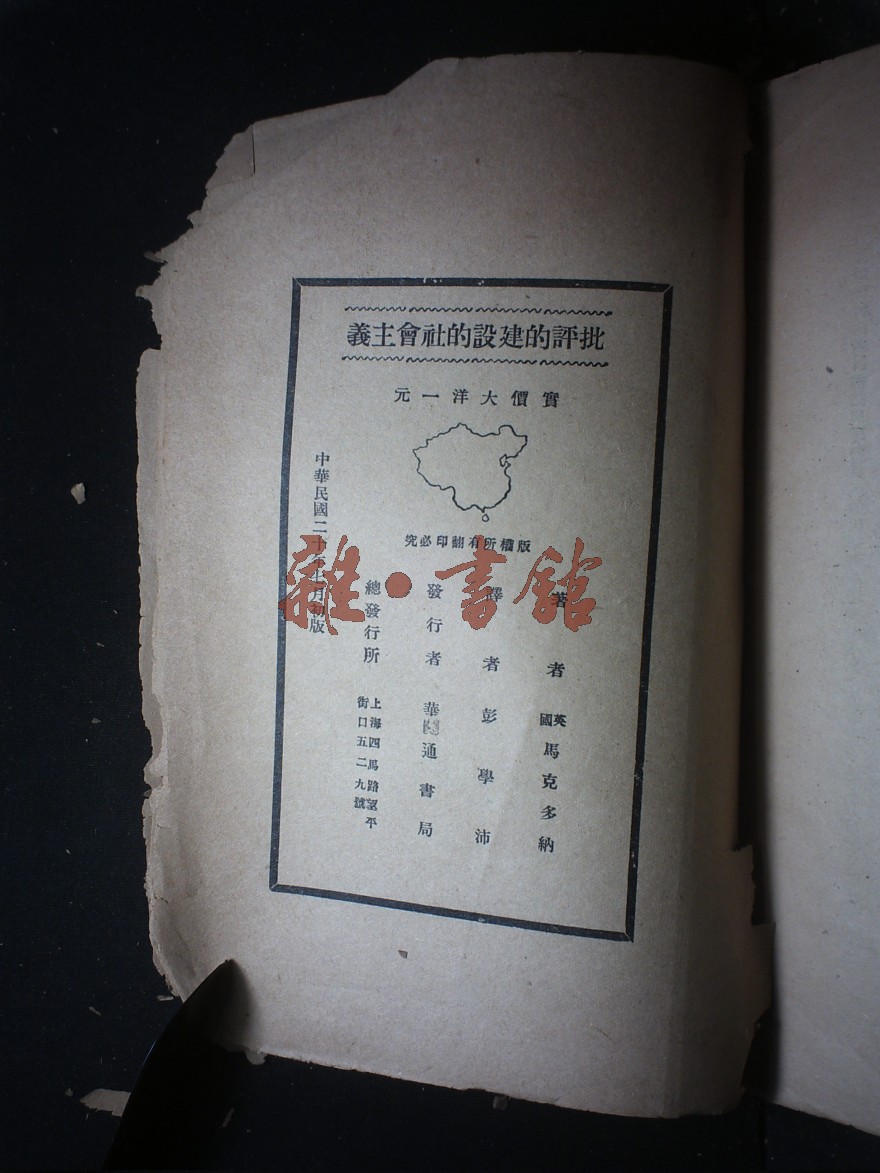 批評的建設的社會主義
實價大洋一元
版權所有翻印必究
著者 英國 馬克多納
譯者 彭學沛
發行者 華通書局
總發行所 上海四馬路望平街口五二九號
中華民國二十年七月初版
雜·書館